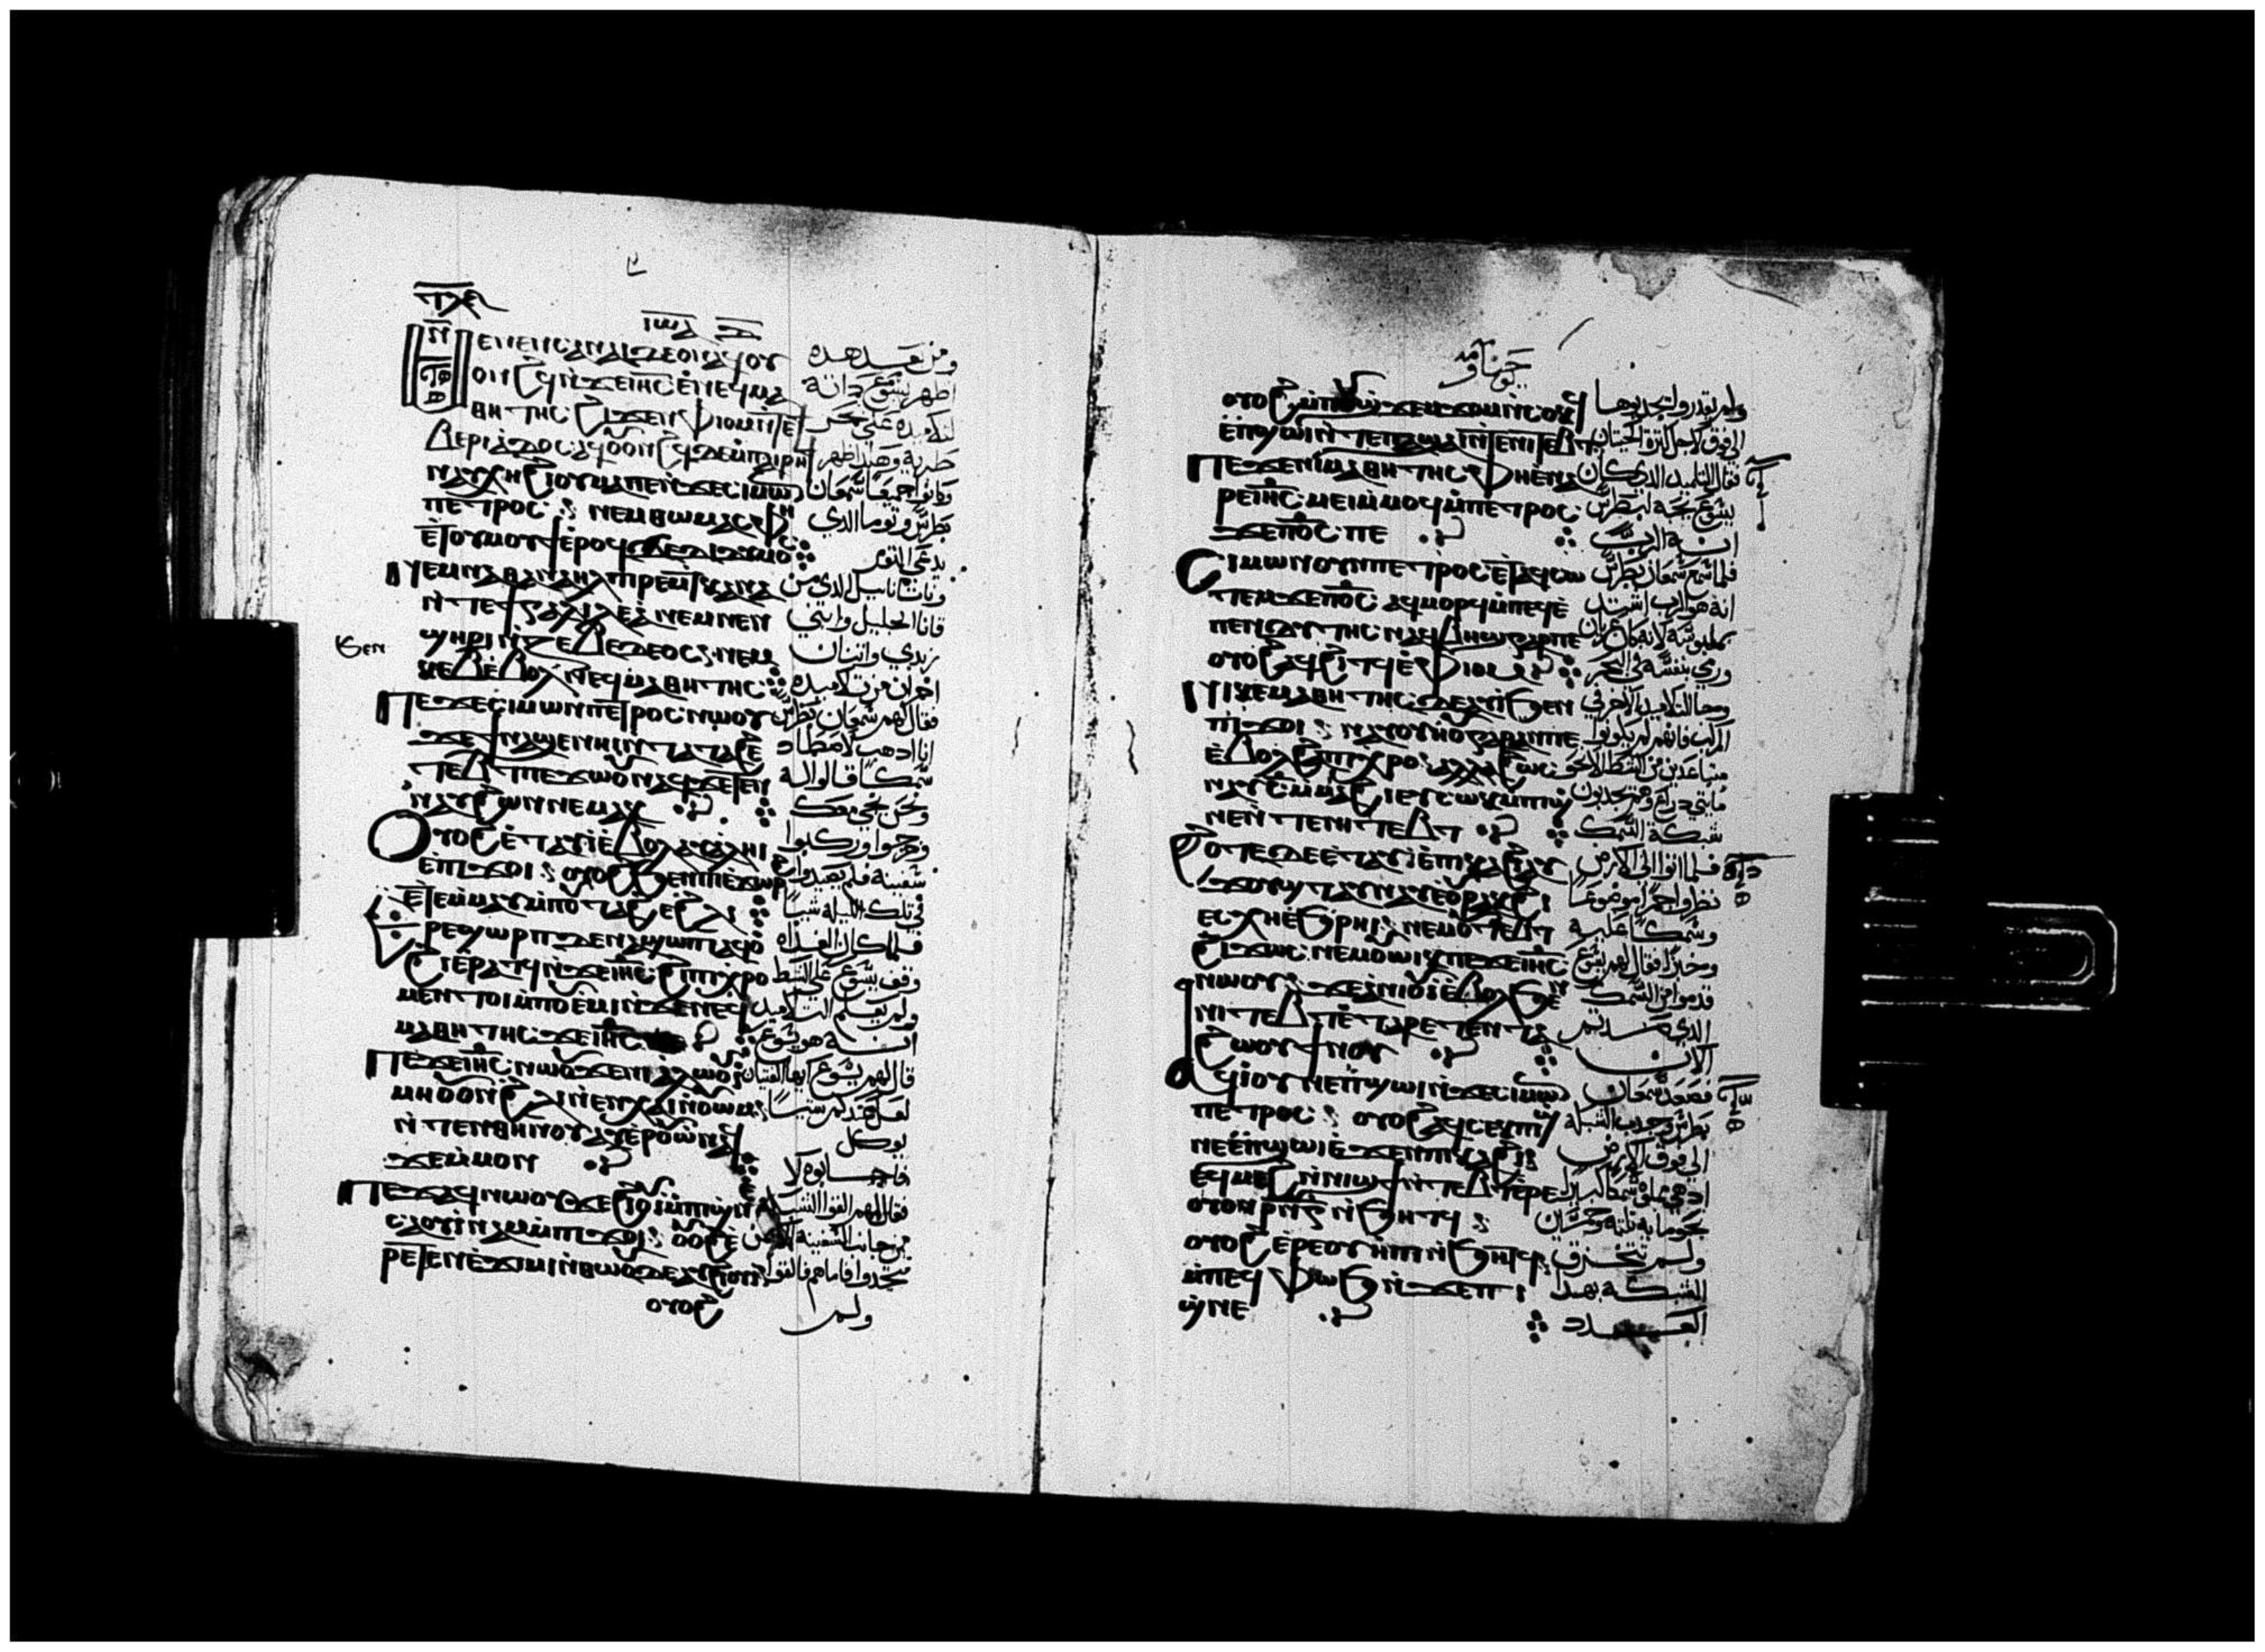 ⲓⲱⲁ
ⲉⲛⲉⲛⲥⲁⲛⲁⲓ ⲇⲉ ⲟⲛ ⲁϥⲟⲩ ومن بعد هذه
ⲟⲛϩϥ ⲛϫⲉ ⲓⲏⲥ ⲉⲛⲉϥⲙⲁ اظهر يسوع ذاته
ⲑⲏⲧⲏⲥ ϩⲓϫⲉⲛ ⲫⲓⲟⲙ ⲛⲧⲉϯ لتلاميده على بحر
ⲃⲉⲣⲓⲁⲇⲟⲥ ⲁϥⲟⲟⲛϩϥ ⲇⲉ ⲙⲡⲁⲓⲣⲏϯ طبرية وهكذا ظهر
ⲛⲁⲩⲭⲏ ϩⲓⲟⲩⲙⲁ ⲡⲉ ⲛϫⲉ ⲥⲓⲙⲱⲛ كانوا جميعا سمعان
ⲡⲉⲧⲣⲟⲥ ⲛⲉⲙ ⲑⲱⲙⲁⲥ ⲫⲏ بطرس وتوما الذي
ⲉⲧⲟⲩⲙⲟⲩϯ ⲉⲣⲟϥ ϫⲉ ⲇⲓⲇⲩⲙⲟⲥ يدعى التوم
ⲛⲉⲙ ⲛⲁⲑⲁⲛⲁⲏⲗ ⲡⲓⲣⲉⲙⲕⲁⲛⲁ وناتاناييل الذي من
ⲛⲧⲉ ϯⲅⲁⲗⲓⲗⲉⲁ ⲛⲉⲙ ⲛⲉⲛ قانا الجليل وابني
ϣⲏⲣⲓ ⲛⲍⲉⲃⲉⲇⲉⲟⲥ ⲛⲉⲙ زبدي واتنان
ⲕⲉⲃ ⲉⲃⲟⲗ ϧⲉⲛ ⲛⲉϥⲙⲁⲑⲏⲧⲏⲥ اخران من تلاميده
ⲡⲉϫⲉ ⲥⲓⲙⲱⲛ ⲡⲉⲧⲣⲟⲥ ⲛⲱⲟⲩ فقال لهم سمعان بطرس
ϫⲉ ϯⲛⲁϣⲉⲛⲏⲓ ⲛⲧⲁⲧⲁϩⲉ انا ادهب لاصطاد
ⲧⲉⲃⲧ ⲡⲉϫⲱⲟⲩ ⲛⲁϥ ϫⲉ ⲧⲉⲛ سمكا قالوا له
ⲛⲏⲟⲩ ϩⲱⲛ ⲛⲉⲙⲁⲕ ونحن نجي معك
ⲟⲩⲟϩ ⲉⲧⲁⲩⲓ ⲉⲃⲟⲗ ⲁⲩⲁⲗⲏⲓ وخرجوا وركبوا
ⲉⲡϫⲟⲓ ⲟⲩⲟϩ ϧⲉⲛ ⲡⲓⲉϫⲱⲣϩ سفينة فلم يصيدوا
ⲉⲧⲉⲙⲙⲁⲩ ⲙⲡⲟⲩⲧⲁϩⲉ ϩⲗⲓ في تلك الليلة شيا
ϩⲁⲣⲉϣⲱⲣⲡ ⲇⲉ ⲛⲁϣⲱⲡⲓ ⲁϥⲟ فلما كان الغداه
ϩⲓⲉⲣⲁⲧϥ ⲛϫⲉ ⲓⲏⲥ ϩⲓ ⲡⲓⲭⲣⲟ وقف يسوع على الشط
ⲙⲉⲛⲧⲟⲓ ⲙⲡⲟⲩⲉⲙⲓ ⲛϫⲉ ⲛⲉϥ ولم يعلم التلاميد
ⲙⲁⲑⲏⲧⲏⲥ ϫⲉ ⲓⲏⲥ ⲡⲉ انه هو يسوع
ⲡⲉϫⲉ ⲓⲏⲥ ⲛⲱⲟⲩ ϫⲉ ⲛⲓⲁⲗⲱⲟⲩⲓ قال لهم يسوع ايها الفتيان
ⲙⲏ ⲟⲩⲟⲛ ϩⲗⲓ ⲛⲉⲛⲭⲁⲓ ⲛⲟⲩⲱⲙ لعل عندكم شيا
ⲛⲧⲉⲛ ⲑⲏⲛⲟⲩ ⲁⲩⲉⲣⲟⲩⲱ ⲛⲁϥ يوكل
ϫⲉ ⲙⲙⲟⲛ فاجابوه لا
ⲡⲉϫⲁϥ ⲛⲱⲟⲩ ϫⲉ ϩⲓⲟⲩⲓ ⲙⲡⲓϣⲛⲉ فقال لهم القوا الشبكة
ⲥⲁⲟⲩⲓⲛⲁⲙ ⲙⲡϫⲟⲓ ⲟⲩⲟϩ ⲉ من جانب السفينة الايمن
ⲣⲉⲧⲉⲛⲉϫⲓⲙⲓ ⲛⲑⲱⲟⲩ ⲇⲉ ⲁⲩϩⲓⲟⲩⲓ فتجدوا فاما هم فالقوا
ⲟⲩⲟϩ ولم
ⲟⲩⲟϩ ⲙⲡⲟⲩϣϫⲉⲙϫⲟⲙ ⲛⲥⲟⲕϥ ولم يقدروا يجدبوها
ⲉⲡϣⲱⲓ ⲛⲧⲉⲡⲁϣⲁⲓ ⲛⲧⲉ ⲛⲓⲧⲉⲃⲧ الى فوق لاجل كترة الحيتان
ⲡⲉϫⲉ ⲡⲓⲙⲁⲑⲏⲧⲏⲥ ⲫⲏ ⲉⲛⲁ فقال التلميد الذي كان
ⲣⲉ ⲓⲏⲥ ⲙⲉⲓ ⲙⲙⲟϥ ⲙⲡⲉⲧⲣⲟⲥ يسوع يحبه لبطرس
ϫⲉ ⲡϭⲟⲓⲥ ⲡⲉ انه الرب
ⲥⲓⲙⲱⲛ ⲟⲩⲛ ⲡⲉⲧⲣⲟⲥ ⲉⲧⲁϥⲥⲱ فلما سمع سمعان بطرس
ⲧⲉⲙ ϫⲉ ⲡϭⲟⲓⲥ ⲁϥⲙⲟⲣϥ ⲙⲡⲉϥⲉ انه هو الرب اشتد
ⲡⲉⲛⲇⲩⲧⲏⲥ ⲛⲁϥⲃⲏϣ ⲅⲁⲣ ⲡⲉ بملبوسه لانه كان عريان
ⲟⲩⲟϩ ⲁϥϩⲓⲧϥ ⲉⲫⲓⲟⲙ ورمي بنفسه في البحر
ⲛⲓⲕⲉⲙⲁⲑⲏⲧⲏⲥ ⲇⲉ ⲁⲩⲓ ϧⲉⲛ وجا التلاميد الاخر في
ⲡϫⲟⲓ ⲛⲁⲩⲟⲩⲏⲟⲩ ⲅⲁⲣ ⲁⲛ ⲡⲉ المركب فانهم لم يكونوا
ⲉⲃⲟⲗ ϩⲁ ⲡⲓⲭⲣⲟ ⲁⲗⲗⲁ ϩⲱⲥ متباعدين من الشط الا نحو
ⲛⲁⲩ ⲥ ⲙⲙⲁϩⲓ ⲉⲩⲥⲱⲕ ⲙⲡⲓϣ مايتي دراع وهم يجدبون
ⲛⲉ ⲛⲧⲉ ⲛⲓⲧⲉⲃⲧ شبكة السمك
ϩⲟⲧⲉ ⲇⲉ ⲉⲧⲁⲩⲓ ⲉⲡⲕⲁϩⲓ ⲁⲩ فلما اتوا الى الارض
ⲉⲥⲭⲏ ⲉϧⲣⲏⲓ ⲛⲉⲙ ⲟⲩⲧⲉⲃⲧ وسمكا عليه
ϩⲓϫⲱⲥ ⲛⲉⲙ ⲟⲩⲱⲓⲕ ⲡⲉϫⲉ ⲓⲏⲥ وخبزا فقال لهم يسوع
ⲛⲱⲟⲩ ϫⲉ ⲁⲛⲓⲟⲩⲓ ⲉⲃⲟⲗ ϧⲉⲛ قدموا من السمك
ⲛⲓⲧⲉⲃⲧ ⲉⲧⲁⲣⲉⲧⲉⲛⲧⲁ الذي صدتم
ϩⲱⲟⲩ ϯⲛⲟⲩ الان
ⲁϥⲓ ⲟⲩⲛ ⲉⲡϣⲱⲓ ⲛϫⲉ ⲥⲓⲙⲱⲛ فصعد سمعان
ⲡⲉⲧⲣⲟⲥ ⲟⲩⲟϩ ⲁϥⲥⲉⲕ ⲡⲓϣ بطرس وجدب الشبكة
ⲛⲉ ⲉⲡϣⲱⲓ ⲉϫⲉⲛ ⲡⲓⲕⲁϩⲓ الى فوق الارض
ⲉϥⲙⲉϩ ⲛⲛⲓϣϯ ⲛⲧⲉⲃⲧ ⲉⲣⲉ
ⲟⲩⲟⲛ ⲣⲛⲅ ⲛϧⲏⲧϥ
ⲟⲩⲟϩ ⲉⲣⲉ ⲟⲩⲏⲡⲓ ⲛϧⲏⲧϥ ولم تتخرق
ⲙⲡⲉϥⲫⲱϧ ⲛϫⲉ ⲡⲓ الشبكة بهدا
ϣⲛⲉ العدد